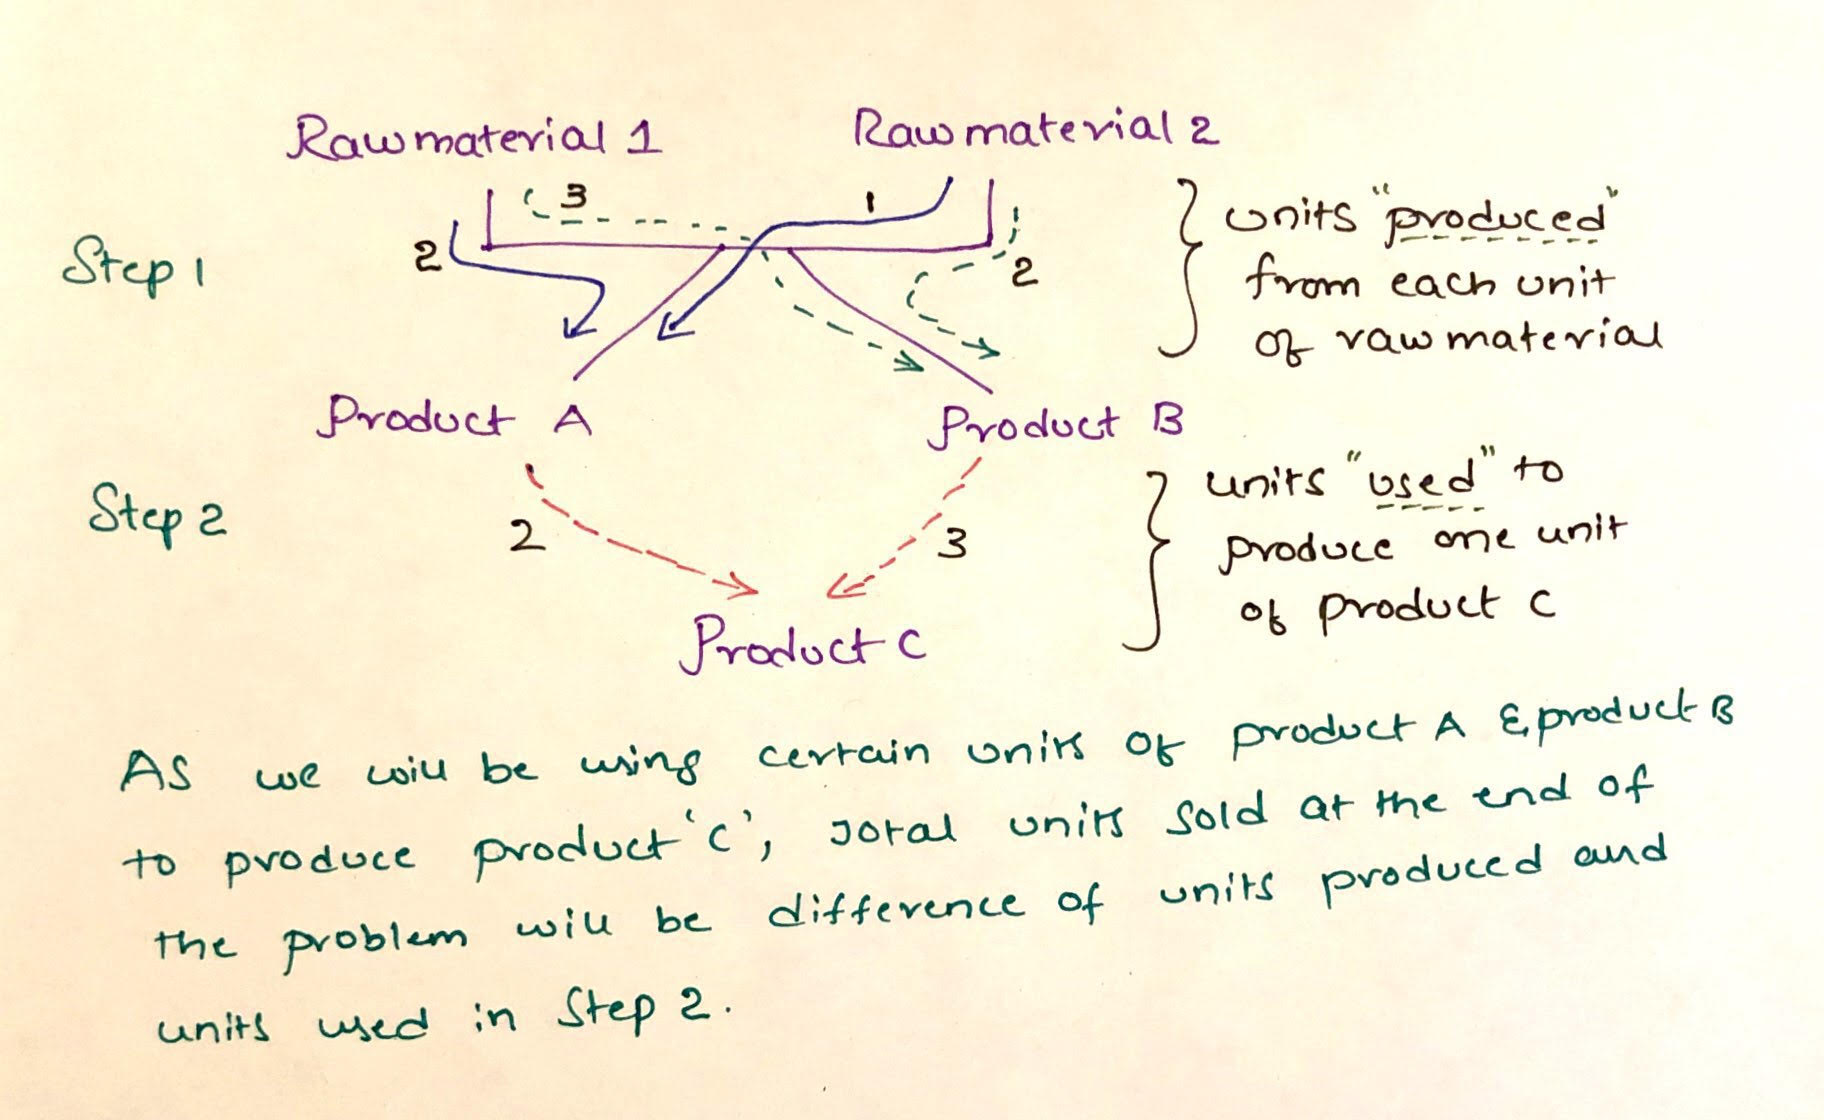 Rawmaterial 1 Rawmaterial 2
3 1
2 2
Step 1
units "produced"
from each unit
of rawmaterial
Product A Product B
Step 2
2 3
units "used" to
produce one unit
of product C
Product C
As we will be using certain units of product A & product B
to produce product 'C', Total units sold at the end of
the problem will be difference of units produced and
units used in Step 2.